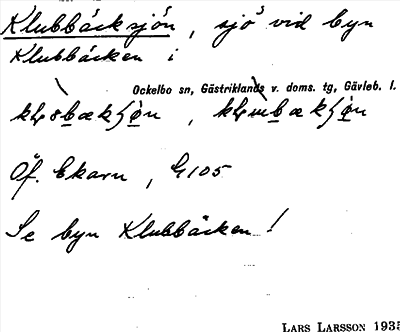 Klubbäcksjön, sjö vid byn
Klubbäcken i
Ockelbo sn, Gästriklands v. doms. tg, Gävleb. l.
Öf. Ekarn, G105
Se byn Klubbäcken!
LARS LARSSON 1935